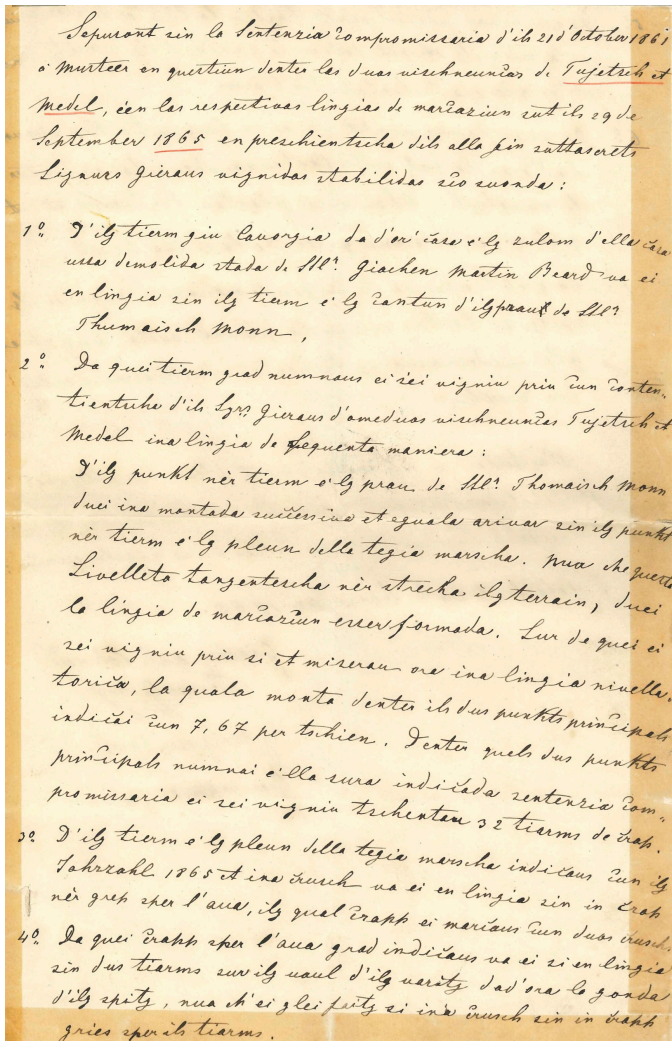 Sepusont sin la Sentenzia Compromissaria d'ils 21 d'October 1861
a Mustèer en questiun denter las duas vischneuncas de Tujetsch et
Medel, éen las respectivas lingia de marcaziun sut ils 29 de
September 1865 en preschientscha dils alla fin suttascrets
Signurs Gieraus vignidas stabilidas sco suonda:
1º D'ilg tierm giu Cavorgia da d'or' casa é lg zulom d'ella casa
ussa demolida stada de Sllr. Giachen Martin Beard va ei
en lingia sin ilg tierm é lg Cantun d'ilg prau de Sllr
Thumaisch Monn,
2º Da quei tierm grad numnaus ei sei vigniu priu cun conten-
tientscha d'ils Sgrs. Gieraus d'omeduas vischneuncas Tujetsch et
Medel ina lingia de sequenta maniera:
D'ilg punkt nèr tierm é lg prau de Sllr. Thomaisch Monn
duei ina montada successiva et eguala arivar sin ilg punkt
nèr tierm é lg pleun della tegia marscha. nua che questa
Livelleta tangentescha nèr strecha ilg terrain, duei
la lingia de marcaziun esser formada. Sur de quei ei
sei vigniu priu si et miserau ora ina lingia nivella-
torica, la quala monta denter ils dus punkts principals
indicai cun 7,67 per tschien. Denter quels dus punkts
principals numnai é lla sura indicada sentenzia com-
promissaria ei sei vigniu tschentau 32 tiarms de crap.
3º D'ilg tierm é lg pleun della tegia marscha indicaus cun ilg
Jahrzahl 1865 et ina crusch va ei en lingia sin in crap
nèr grep sper l'aua, ilg qual crapp ei marcaus cun duas cruschs
4º Da quei crapp sper l'aua grad indicaus va ei si en lingia
sin dus tiarms sur ilg uaul d'ilg varitg dad'ora la gonda
d'ilg spitg, nua ch'ei glei fatg si ina crusch sin in crapp
gries sper ils tiarms.